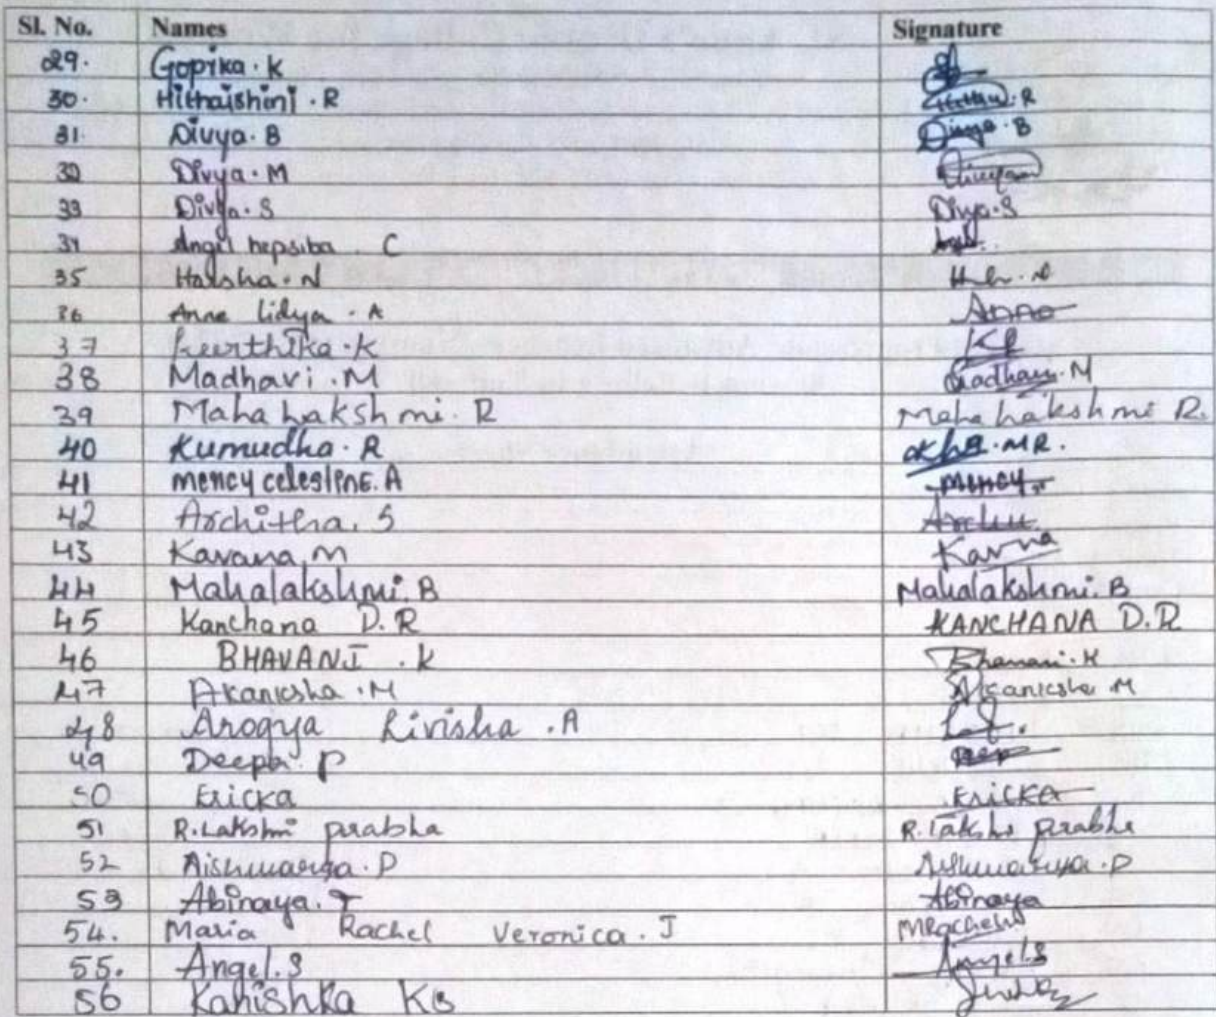 Sl. No. Names Signature
29. Gopika. K
30. Hithaishini. R
31. Divya. B Divya. B
32 Divya. M
33 Divya. S Divya. S
34 Angil hepsiba. C
35 Harsha. N
36 Anne lidiya. A Anne
37 Keerthika. K
38 Madhavi. M Madhavi. M
39 Maha Lakshmi. R Maha Lakshmi R.
40 Kumudha. R
41 mency celestine. A mency
42 Architha. S Archu
43 Kavana M Kavna
44 Mahalakshmi. B Mahalakshmi. B
45 Kanchana D. R KANCHANA D. R
46 BHAVANI. K Bhavani. K
47 Akanksha. M Akanksha M
48 Arogya Livisha. A
49 Deepa. P
50 Ericka Ericka
51 R. Lakshmi prabha R. Lakshmi prabha
52 Aishwarya. P Aishwarya. P
53 Abinaya. T Abinaya
54. Maria Rachel Veronica. J MRachel
55. Angel. S Angel. S
56 Kanishka KS